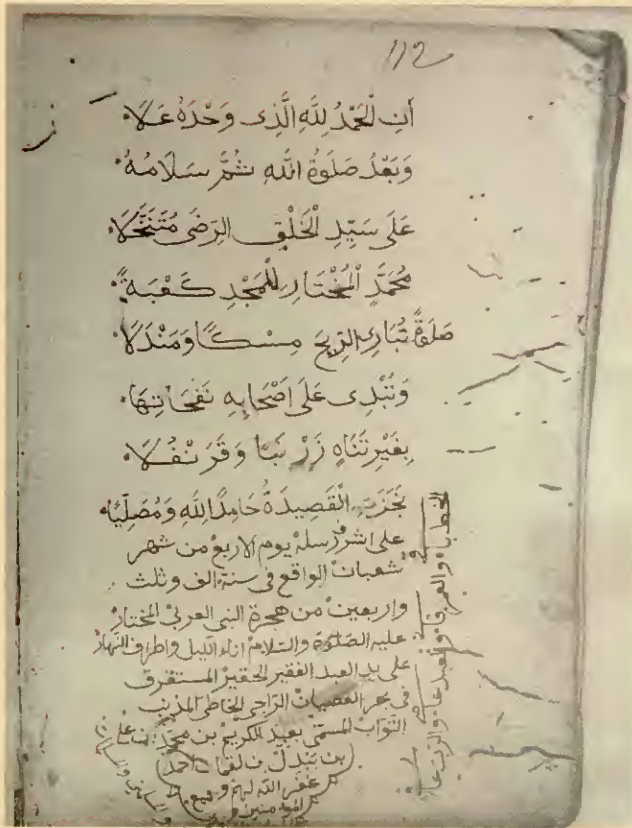 112
أَنِ الْحَمْدُ لِلَّهِ الَّذِى وَحْدَهُ عَلَا
وَبَعْدُ صَلَوةُ اللَّهِ ثُمَّ سَلَامُهُ
عَلَى سَيِّدِ الْخَلْقِ الرِّضَى مُتَنَخَّلَا
مُحَمَّدٍ الْمُخْتَارِ لِلْمَجْدِ كَعْبَةً
صَلَوةً تُبَارِى الرِّيحَ مِسْكًا وَمَنْدَلَا
وَتُبْدِى عَلَى أَصْحَابِهِ نَفَحَاتِهَا
بِغَيْرِ تَنَاهٍ زَرْنَبًا وَقَرَنْفُلَا
نَجَزَتِ الْقَصِيدَةُ حَامِدًا لِلَّهِ وَمُصَلِّيًا
على اشرف رسله يوم الاربع من شهر
شعبان الواقع فى سنة الف وثلث
واربعين من هجرة النبى العربى المختار
عليه الصلوة والسلام اناء الليل واطراف النهار
على يد العبد الفقير الحقير المستغرق
فى بحر العصيان الراجى الخاطى المذنب
التواب المسمى بعبد الكريم بن محمد بن
بن لقمان احمد
غفر الله لهم ولجميع
المؤمنين